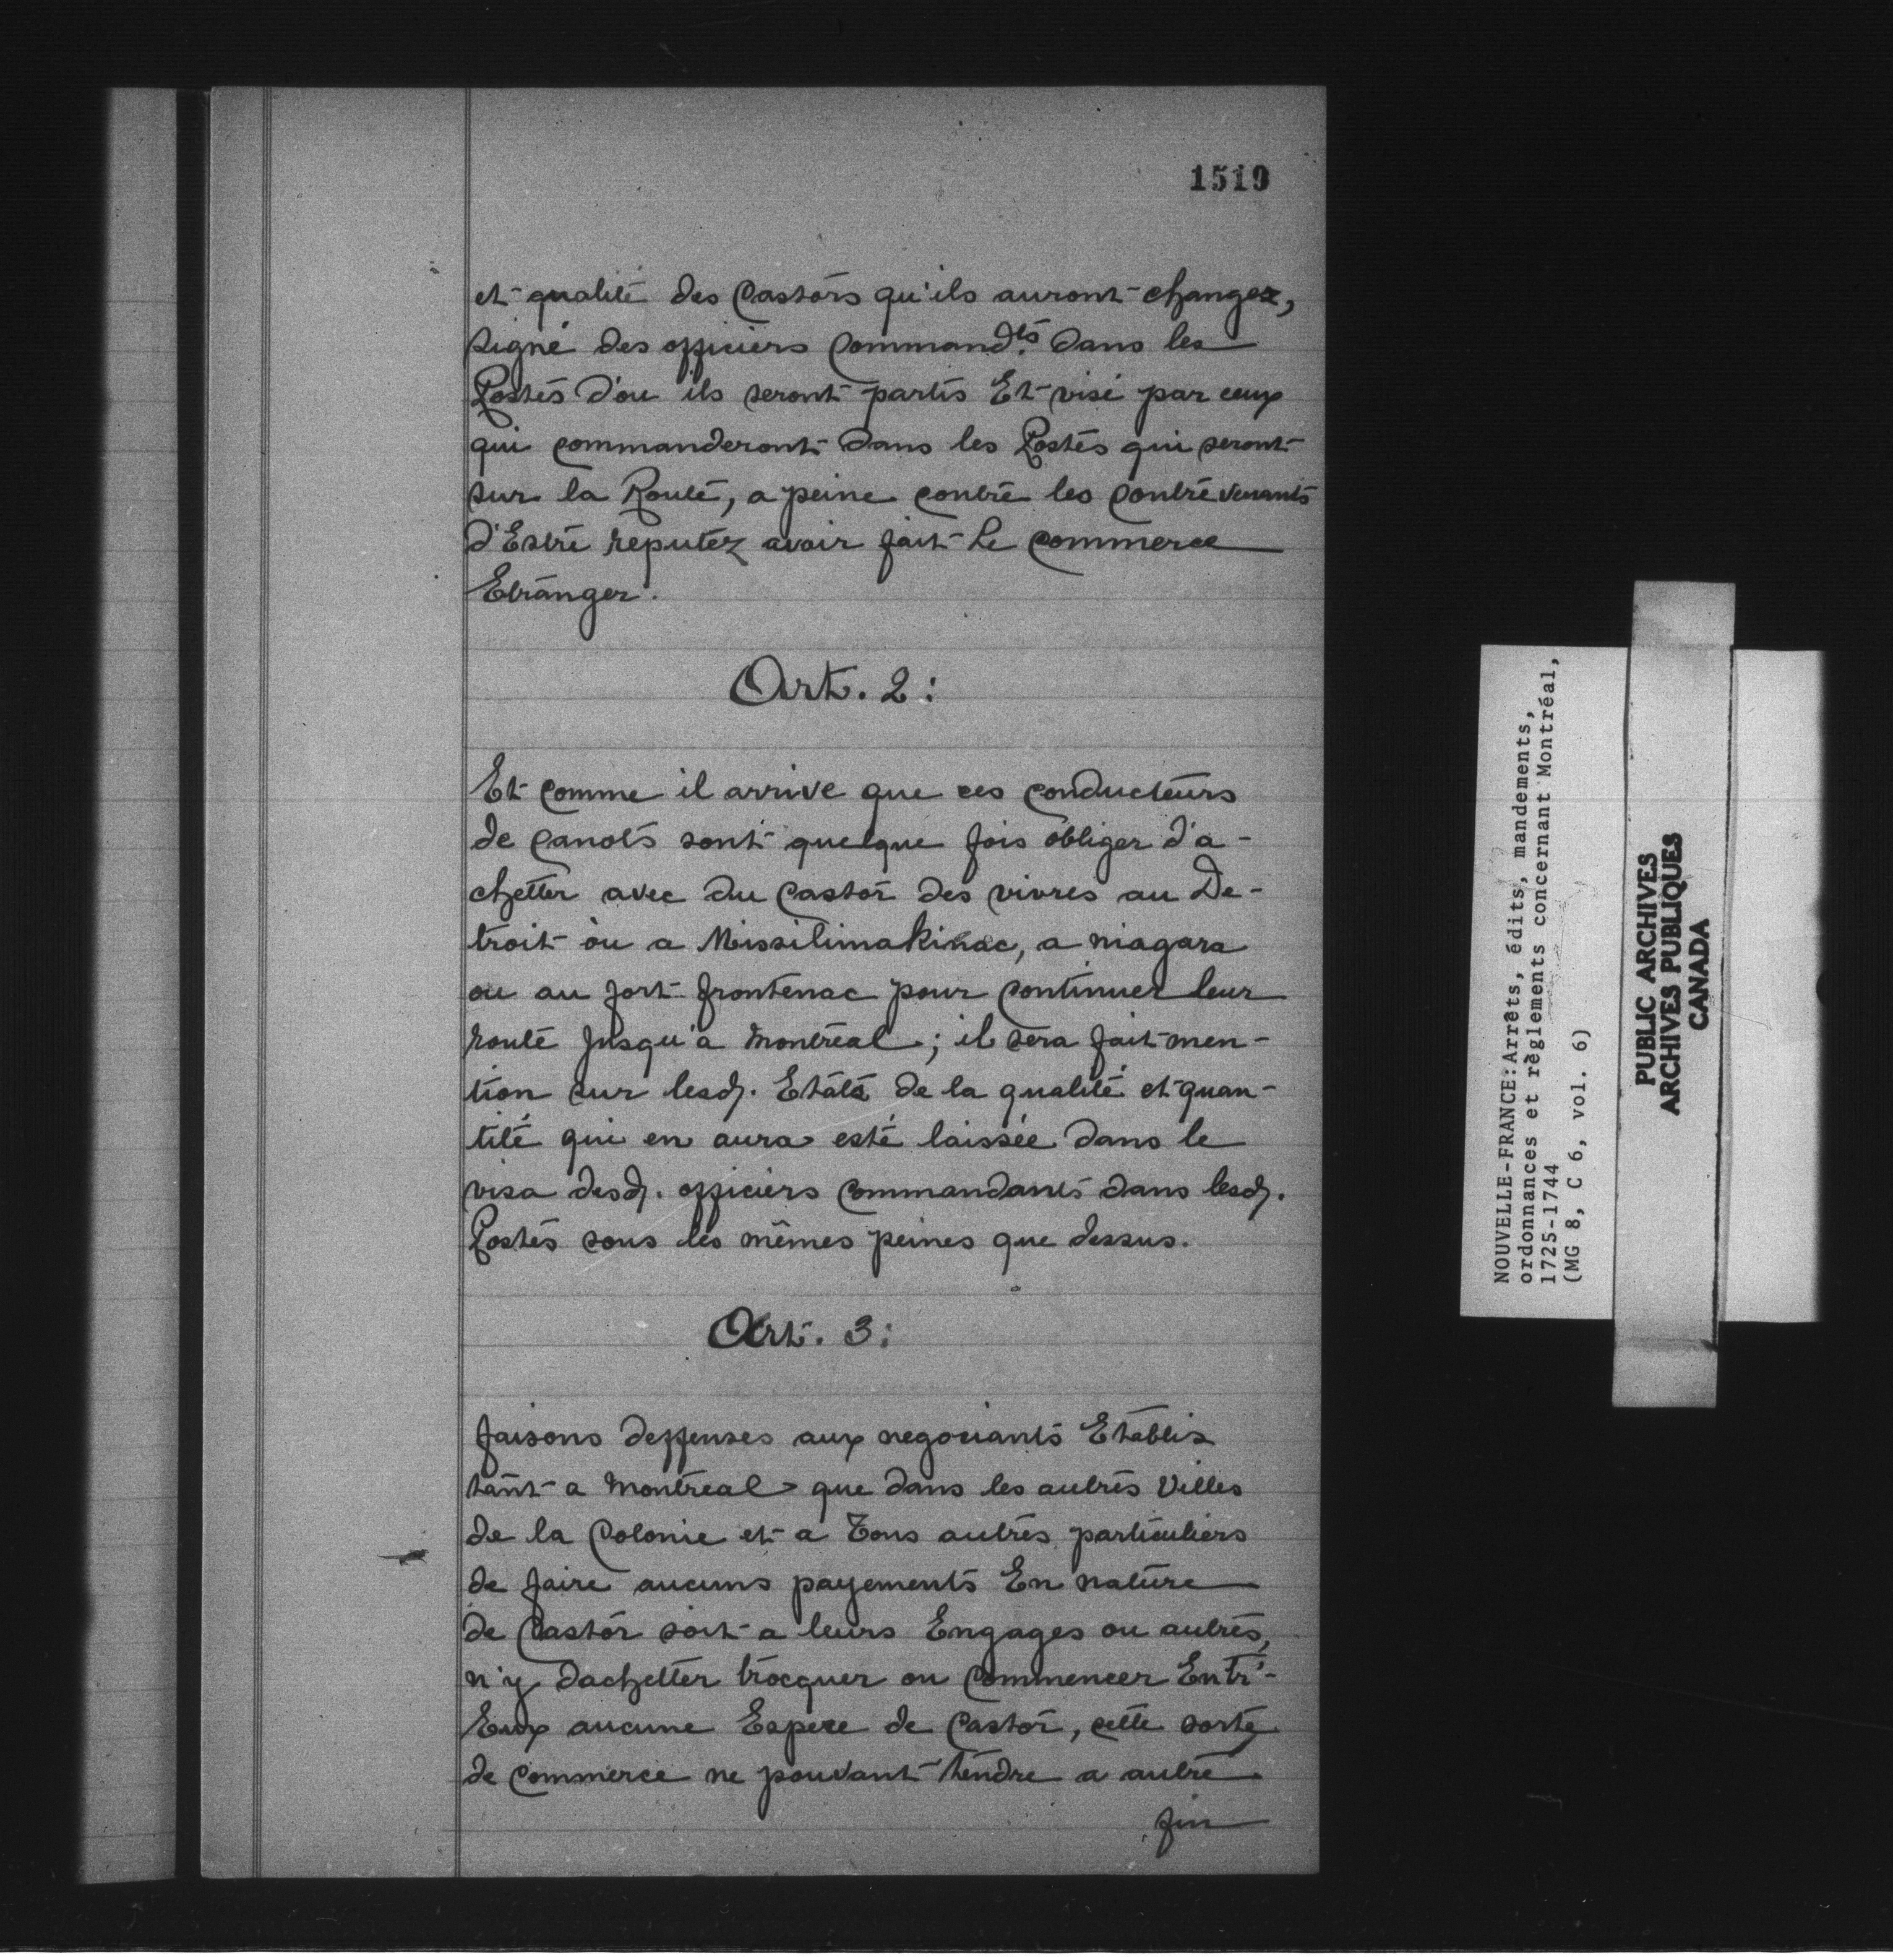 1519
et qualité des Castors qu'ils auront changez,
signé des officiers Command.ts dans les
Postes d'ou ils seront partis Et visé par ceux
qui commanderont dans les Postes qui seront
sur la Route, a peine contre les contrevenants
d'Estre reputez avoir fait Le commerce
Etranger.
Art. 2:
Et comme il arrive que ces conducteurs
de canots sont quelque fois obliger d'a-
chetter avec du Castor des vivres au De-
troit ou a Missilimakinac, a niagara
ou au fort frontenac pour continuer leur
route jusqu'a Montreal; il sera fait men-
tion sur lesd. Etats de la qualité et quan-
tité qui en aura esté laissée dans le
visa desd. officiers commandants dans lesd.
Postes sous les mêmes peines que dessus.
Art. 3:
faisons deffenses aux negociants Etablis
tant a Montreal que dans les autres Villes
de la Colonie et a Tous autres particuliers
de faire aucuns payements En nature
de Castor soit a leurs Engages ou autres,
n'y dachetter trocquer ou Commencer Entr'-
Eux aucune Espece de Castor, cette sorte
de commerce ne pouvant tendre a autre
fin
NOUVELLE-FRANCE: Arrêts, édits, mandements,
ordonnances et règlements concernant Montréal,
1725-1744
(MG 8, C 6, vol. 6)
PUBLIC ARCHIVES
ARCHIVES PUBLIQUES
CANADA